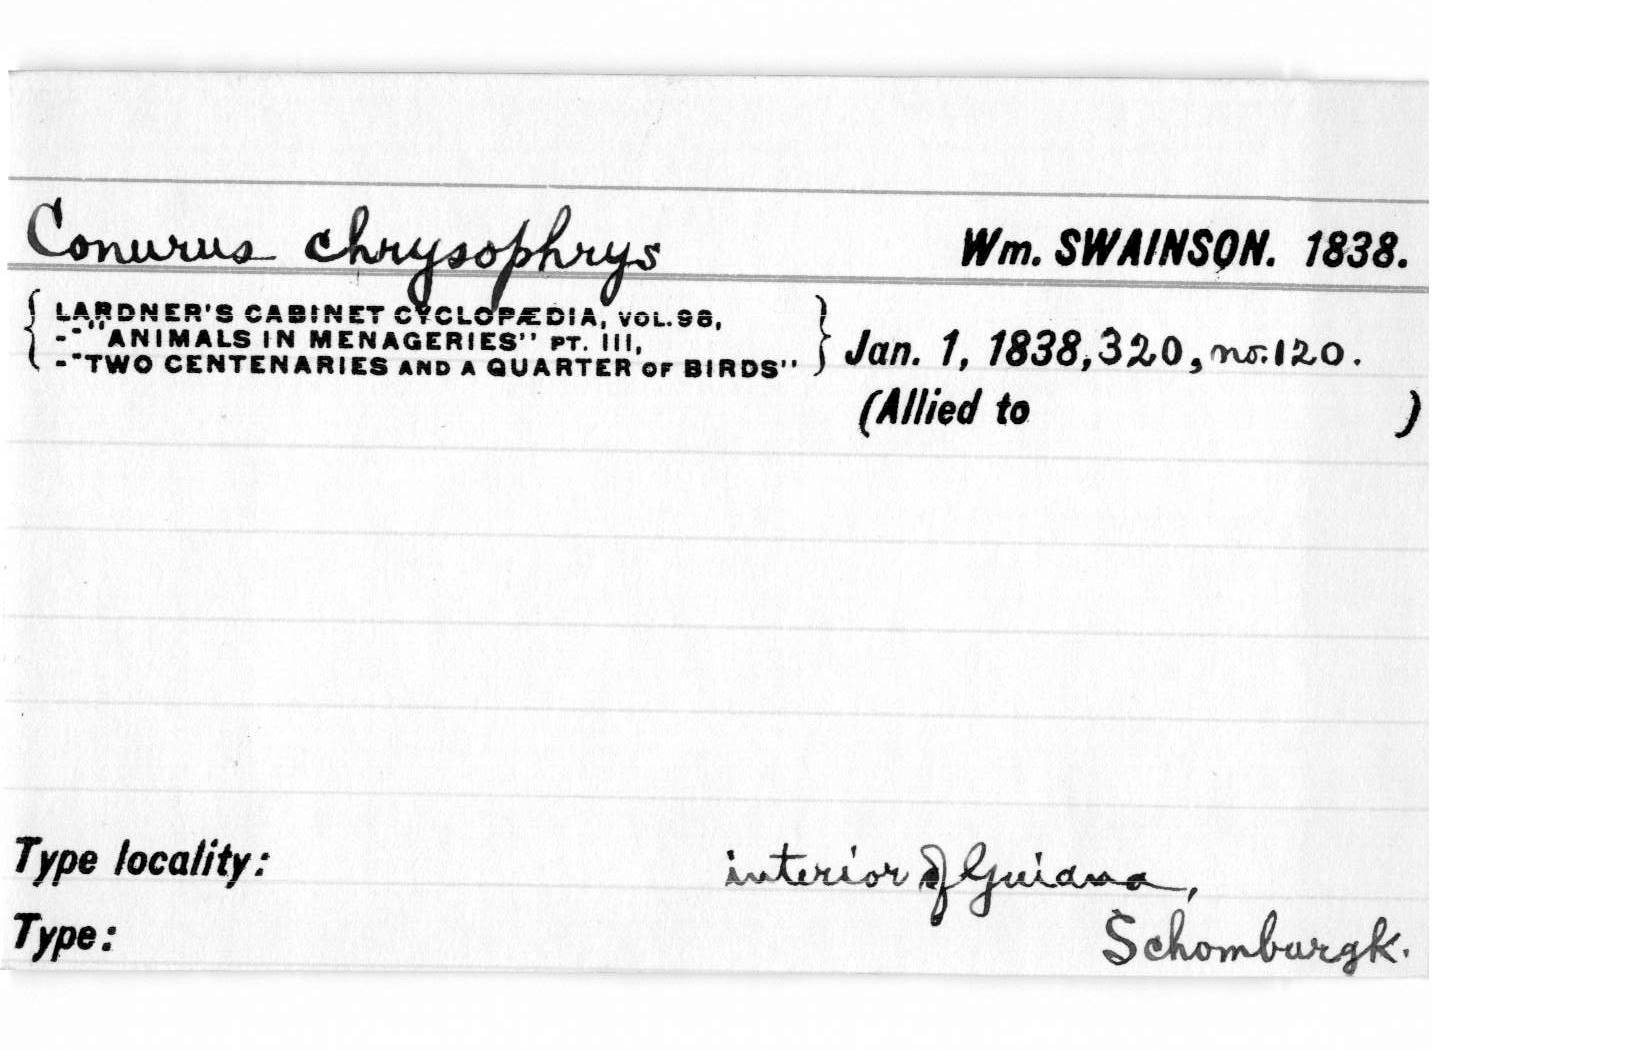 Conurus chrysophrys Wm. SWAINSON. 1838.
LARDNER'S CABINET CYCLOPÆDIA, VOL. 98,
-"ANIMALS IN MENAGERIES" PT. III,
-"TWO CENTENARIES AND A QUARTER OF BIRDS"
Jan. 1, 1838, 320, no. 120.
(Allied to )
Type locality: interior of Guiana,
Type: Schomburgk.